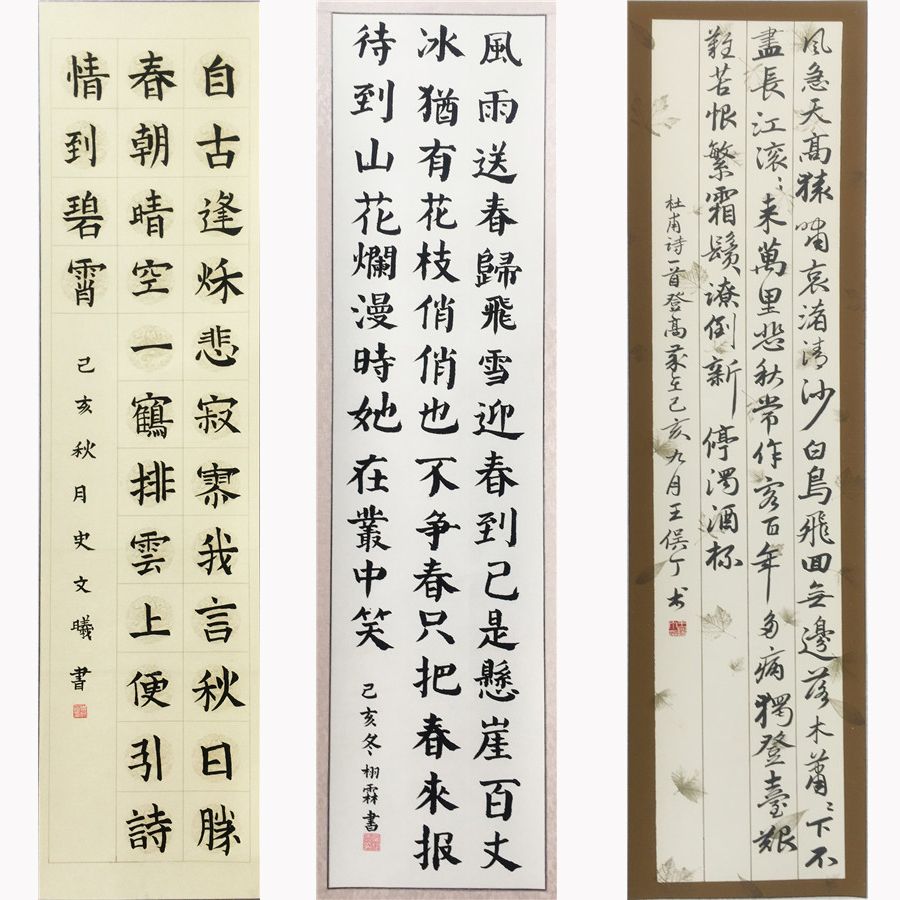 自古逢秌悲寂寥我言秋日勝
春朝晴空一鶴排雲上便引詩
情到碧霄
己亥秋月史文曦書
風雨送春歸飛雪迎春到已是懸崖百丈
冰猶有花枝俏俏也不争春只把春來报
待到山花爛漫時她在叢中笑
己亥冬栩霖書
风急天髙猿嘯哀渚清沙白鳥飛回無邊落木蕭々下不
盡長江滚々来萬里悲秋常作客百年多病獨登臺艱
難苦恨繁霜鬓潦倒新停濁酒杯
杜甫诗一首登高歲在己亥九月王俣丁书